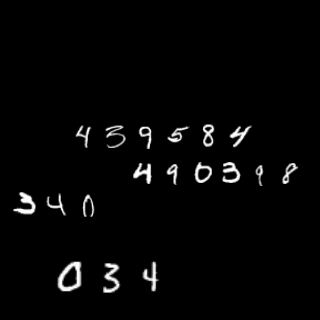 439584
490398
340
034